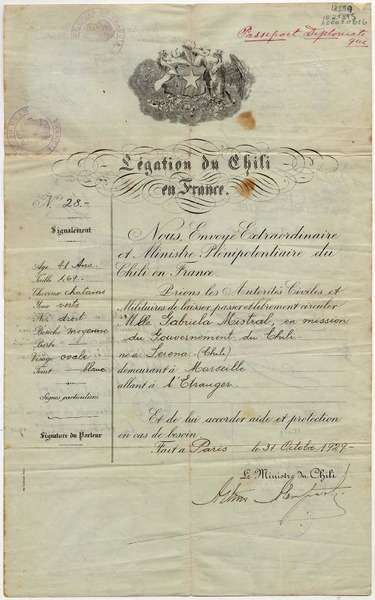 Passeport Diplomati
que
Légation du Chili
en France.
N° 28.-
Signalement
Age 41 Ans.
Taille 1,69.-
Cheveux chatains
Yeux verts
Nez droit
Bouche moyenne
Barbe
Visage ovale
Teint blanc
Signes particuliers
Signature du Porteur
Nous, Envoyé Extraordinaire
et Ministre Plénipotentiaire du
Chili en France
Prions les Autorités Civiles et
Militaires de laisser passer et librement circuler
Mlle Gabriela Mistral, en mission
du Gouvernement du Chili
né à Serena (Chili)
demeurant à Marseille
allant à l'Etranger.
Et de lui accorder aide et protection
en cas de besoin.
Fait à Paris le 31 Octobre 1929.-
Le Ministre du Chili